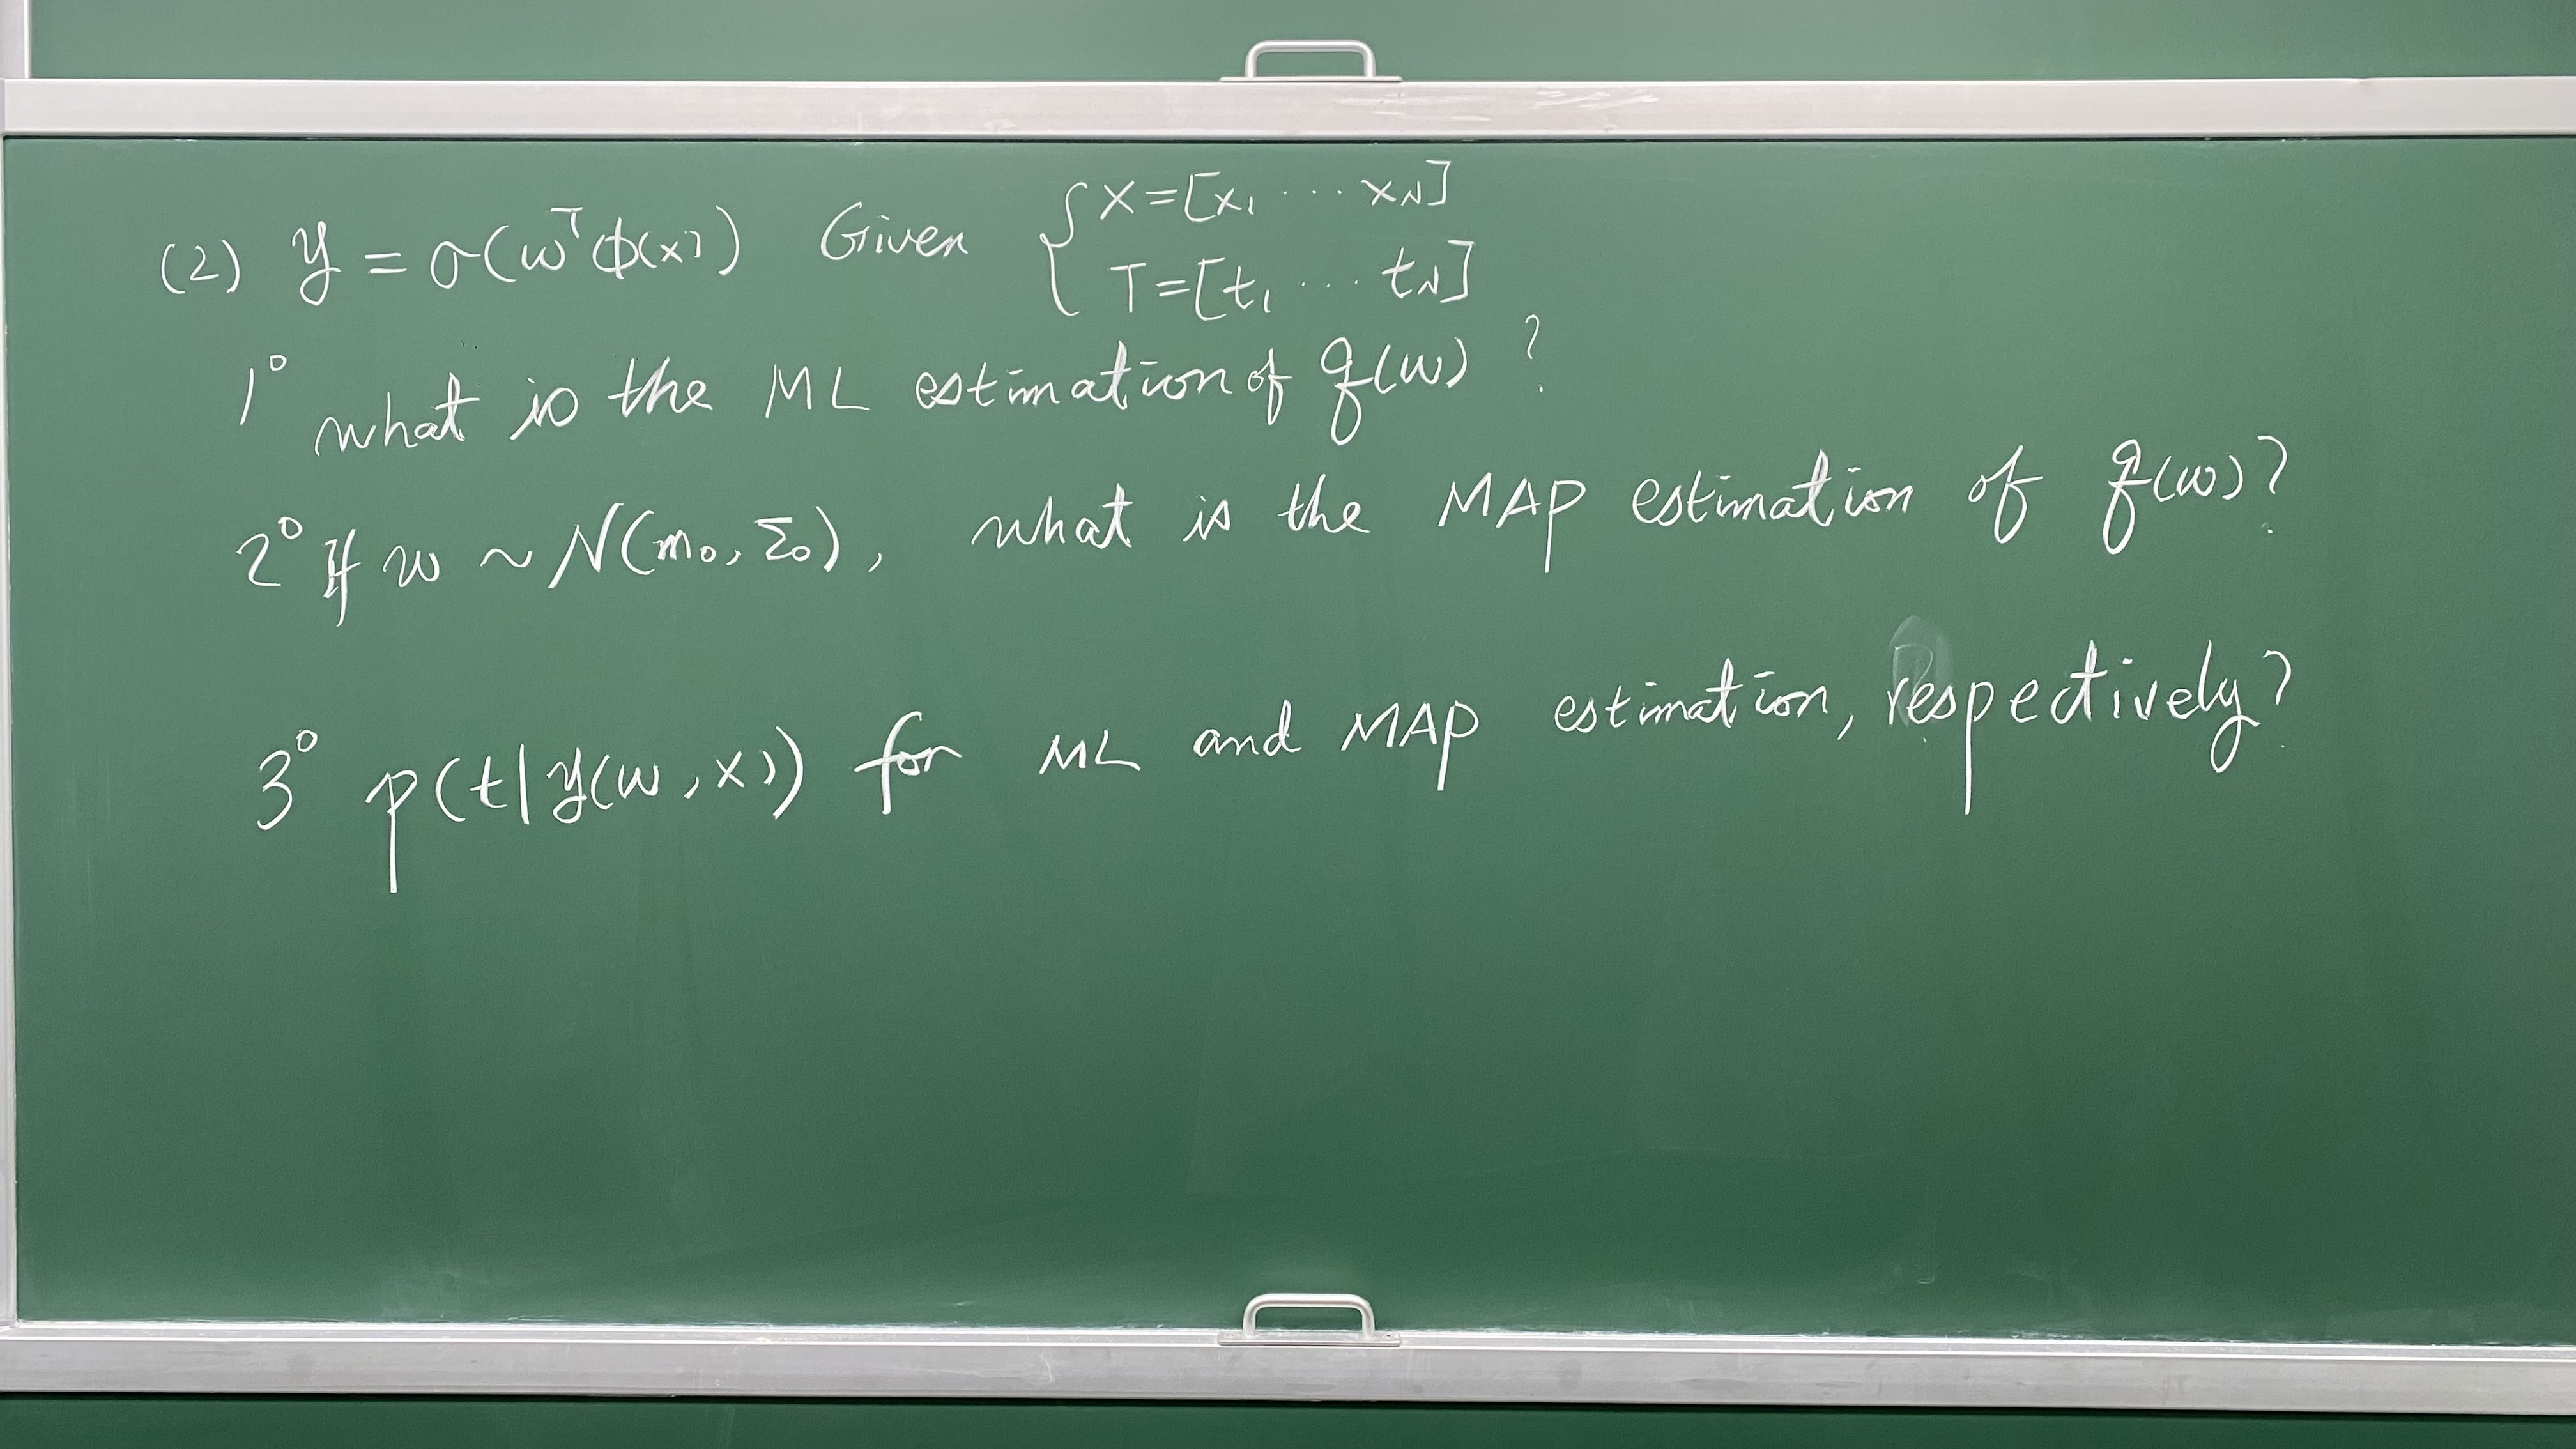 (2) y = σ(wᵀφ(x)) Given { X=[x₁ ... x_N]
T=[t₁ ... t_N]
1° what is the ML estimation of q(w) ?
2° If w ~ N(m₀, Σ₀), what is the MAP estimation of q(w)?
3° p(t|y(w,x)) for ML and MAP estimation, respectively?